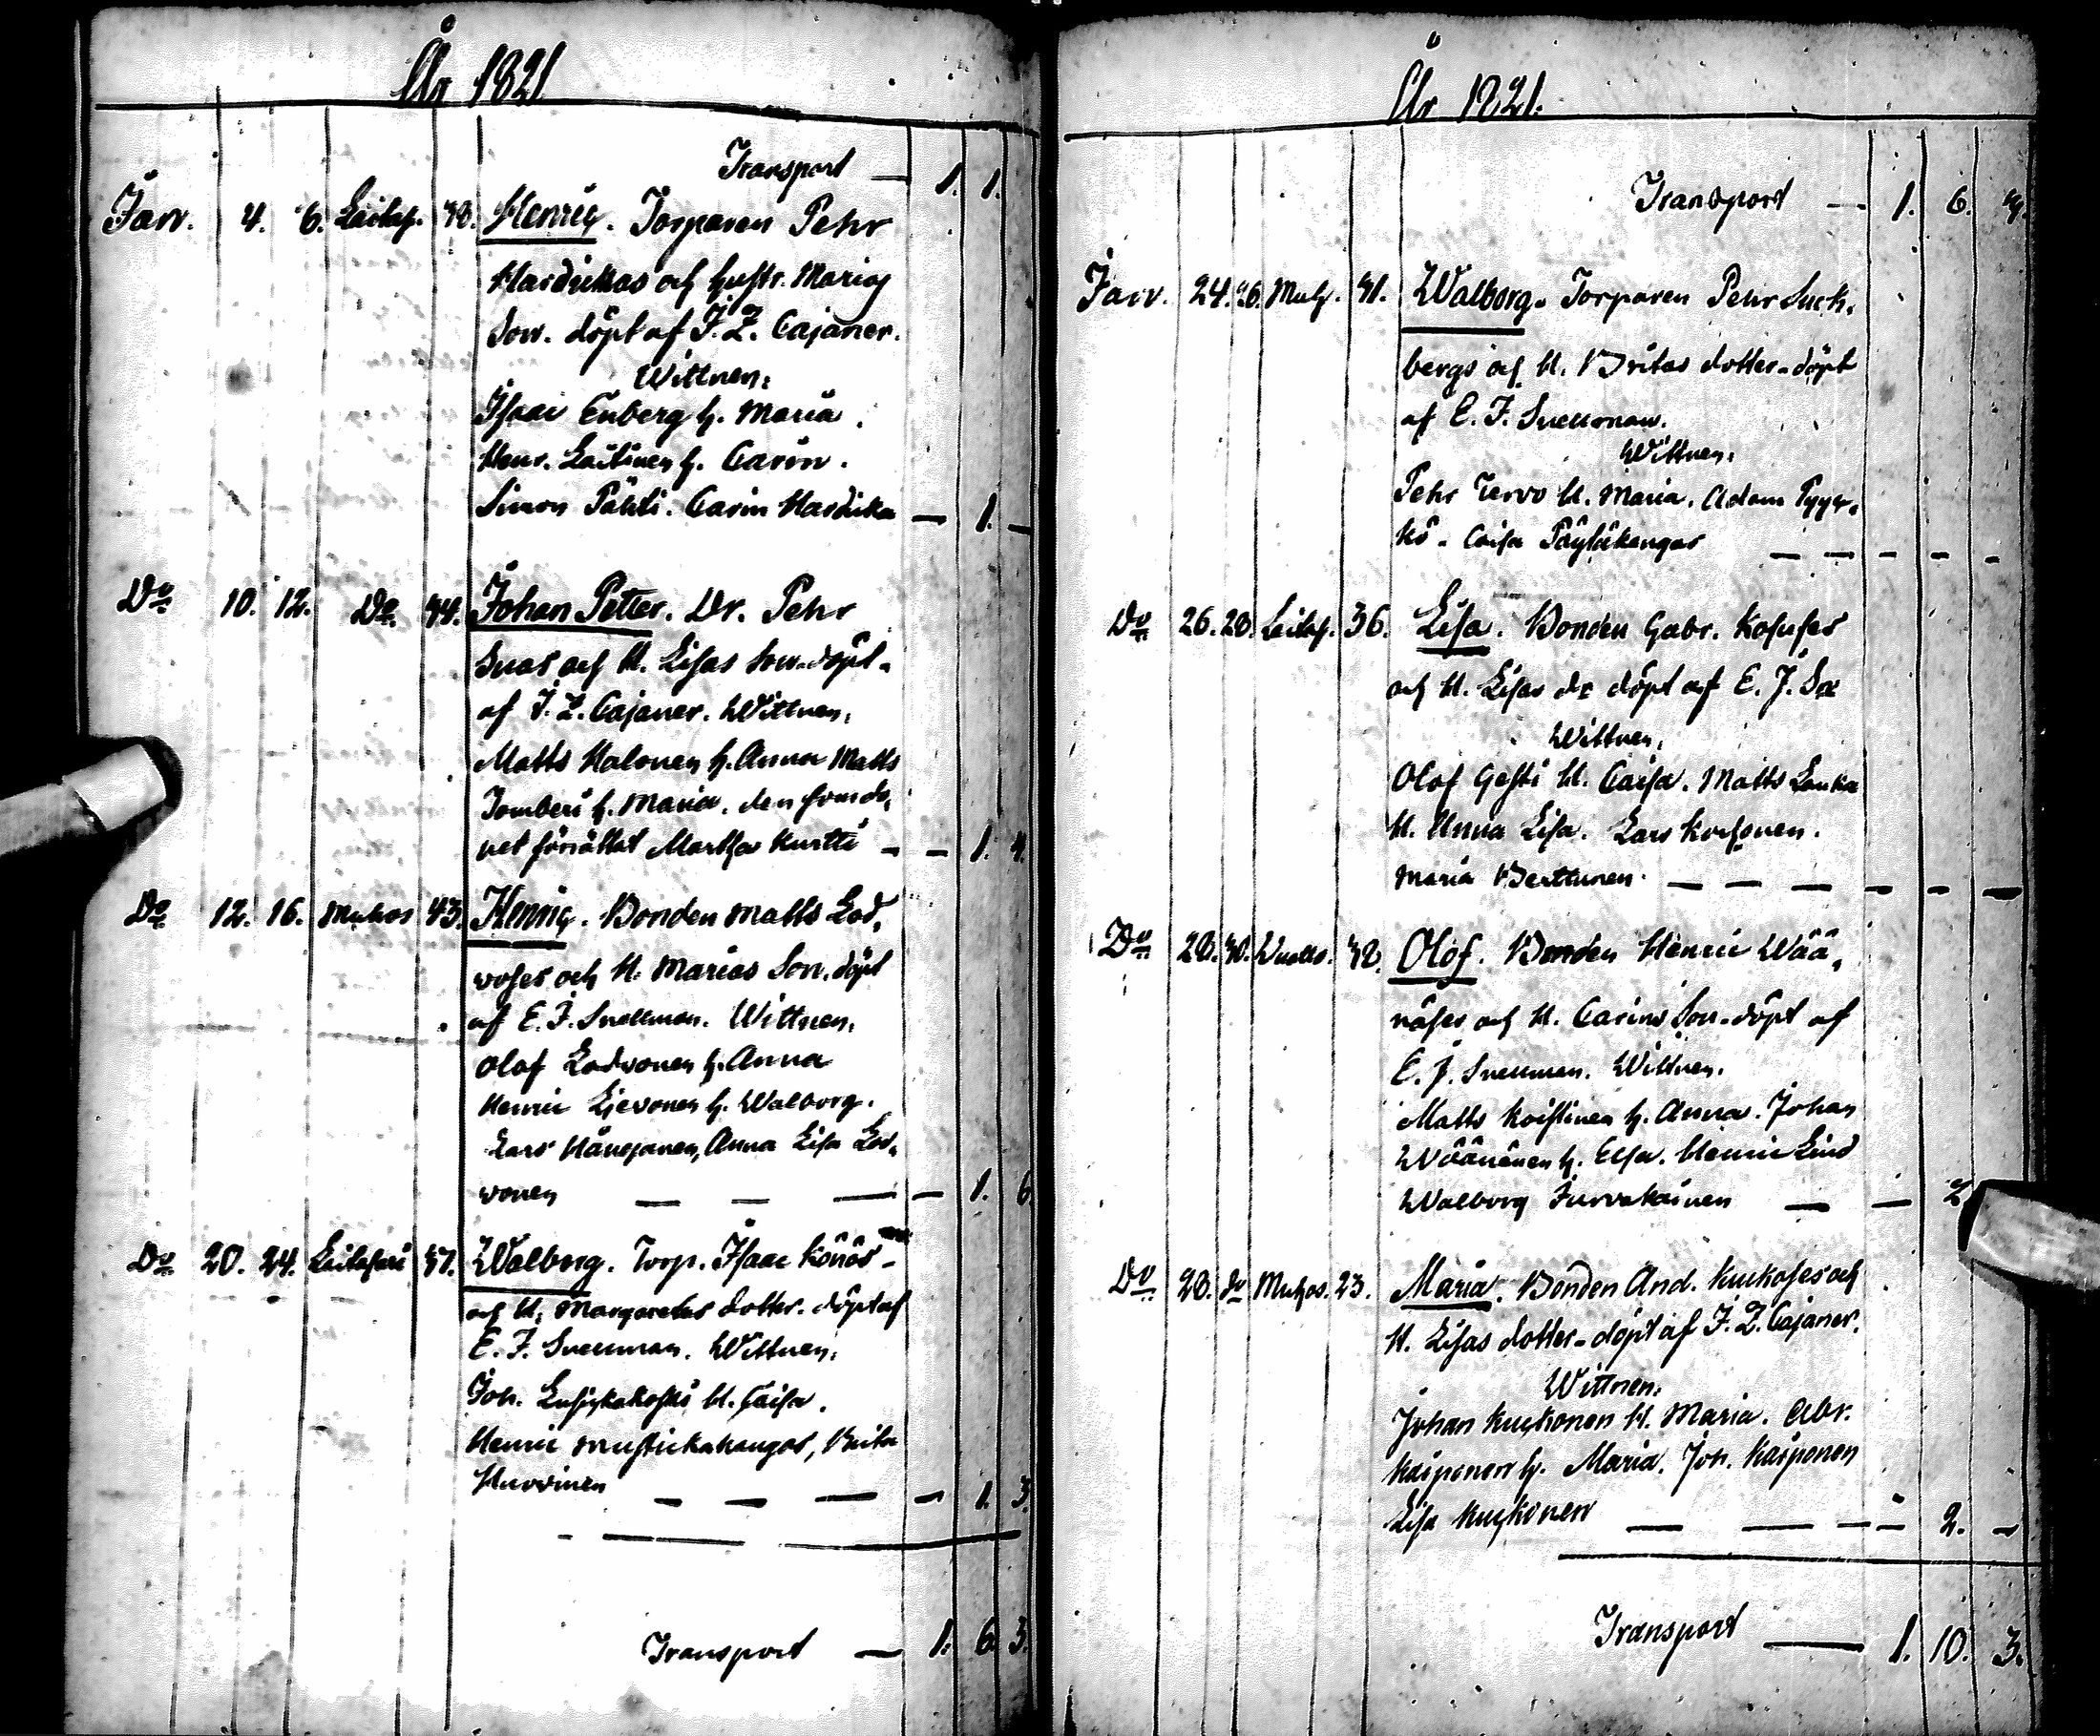 År 1821
Transport — 1. 1.
Janv. 4. 6. Leitaf. 32. Henric. Torparen Pehr
Hardickas och hustr. Marias
Son. döpt af J. Z. Cajaner.
Wittnen:
Isaac Enberg h. Maria.
Henr. Laitinen h. Carin.
Simon Pähti. Carin Hardicka — 1. —
Do 10. 12. Do. 34. Johan Petter. Dr. Pehr
och H. Lisas Son döpt
af J. Z. Cajaner. Wittnen,
Matts Halonen h. Anna Matts
h. Maria.
förrättat Martha Kurtti — — 1. 4.
Do 12. 16. Muhos 43. Henric. Bonden Matts Lod,
woses och H. Marias Son. döpt
af E. J. Snellman. Wittnen,
Olof Lodvonen h. Anna
Henric Lievonen h. Walborg.
Lars Anna Lisa Lod,
wonen — — — — 1. 6
Do 20. 24. 37. Walborg. Torp. Isaac Könös
och H. Margaretas dotter. döpt af
E. J. Snellman. Wittnen,
Joh. H. Caisa.
Henric Mustickakangas, Brita
Hurvinen — — — — 1. 3.
Transport — 1. 6 3.
År 1821.
Transport — 1. 6.
Janv. 24. 26. Muh. 31. Walborg. Torparen Pehr Suck,
bergs och H. Britas dotter döpt
af E. J. Snellman.
Wittnen,
Pehr Tervo H. Maria. Adam Pyyk,
kö. Caisa — — — — —
Do 26. 28. Leitaf. 36. Lisa. Bonden Gabr. Kosuses
och H. Lisas dr döpt af E. J. Sn
Wittnen,
Olof H. Caisa. Matts Lauka
H. Anna Lisa. Lars
Maria Berttunen — — — — — —
Do 28. 30. 32. Olof. Bonden Henric Wää,
näses och H. Carins Son. döpt af
E. J. Snellman. Wittnen.
Matts Koistinen h. Anna. Johan
Wäänänen h. Elsa. Henric Lind
Walborg Jurvakainen — — 2
Do 28. do Muhos. 23. Maria. Bonden And. Kuckoses och
H. Lisas dotter döpt af J. Z. Cajaner.
Wittnen,
Johan Kuckonen H. Maria. Abr.
Kaiponen h. Maria. Joh. Kaiponen
Lisa Kuckonen — — — — 2. —
Transport — 1. 10. 3.